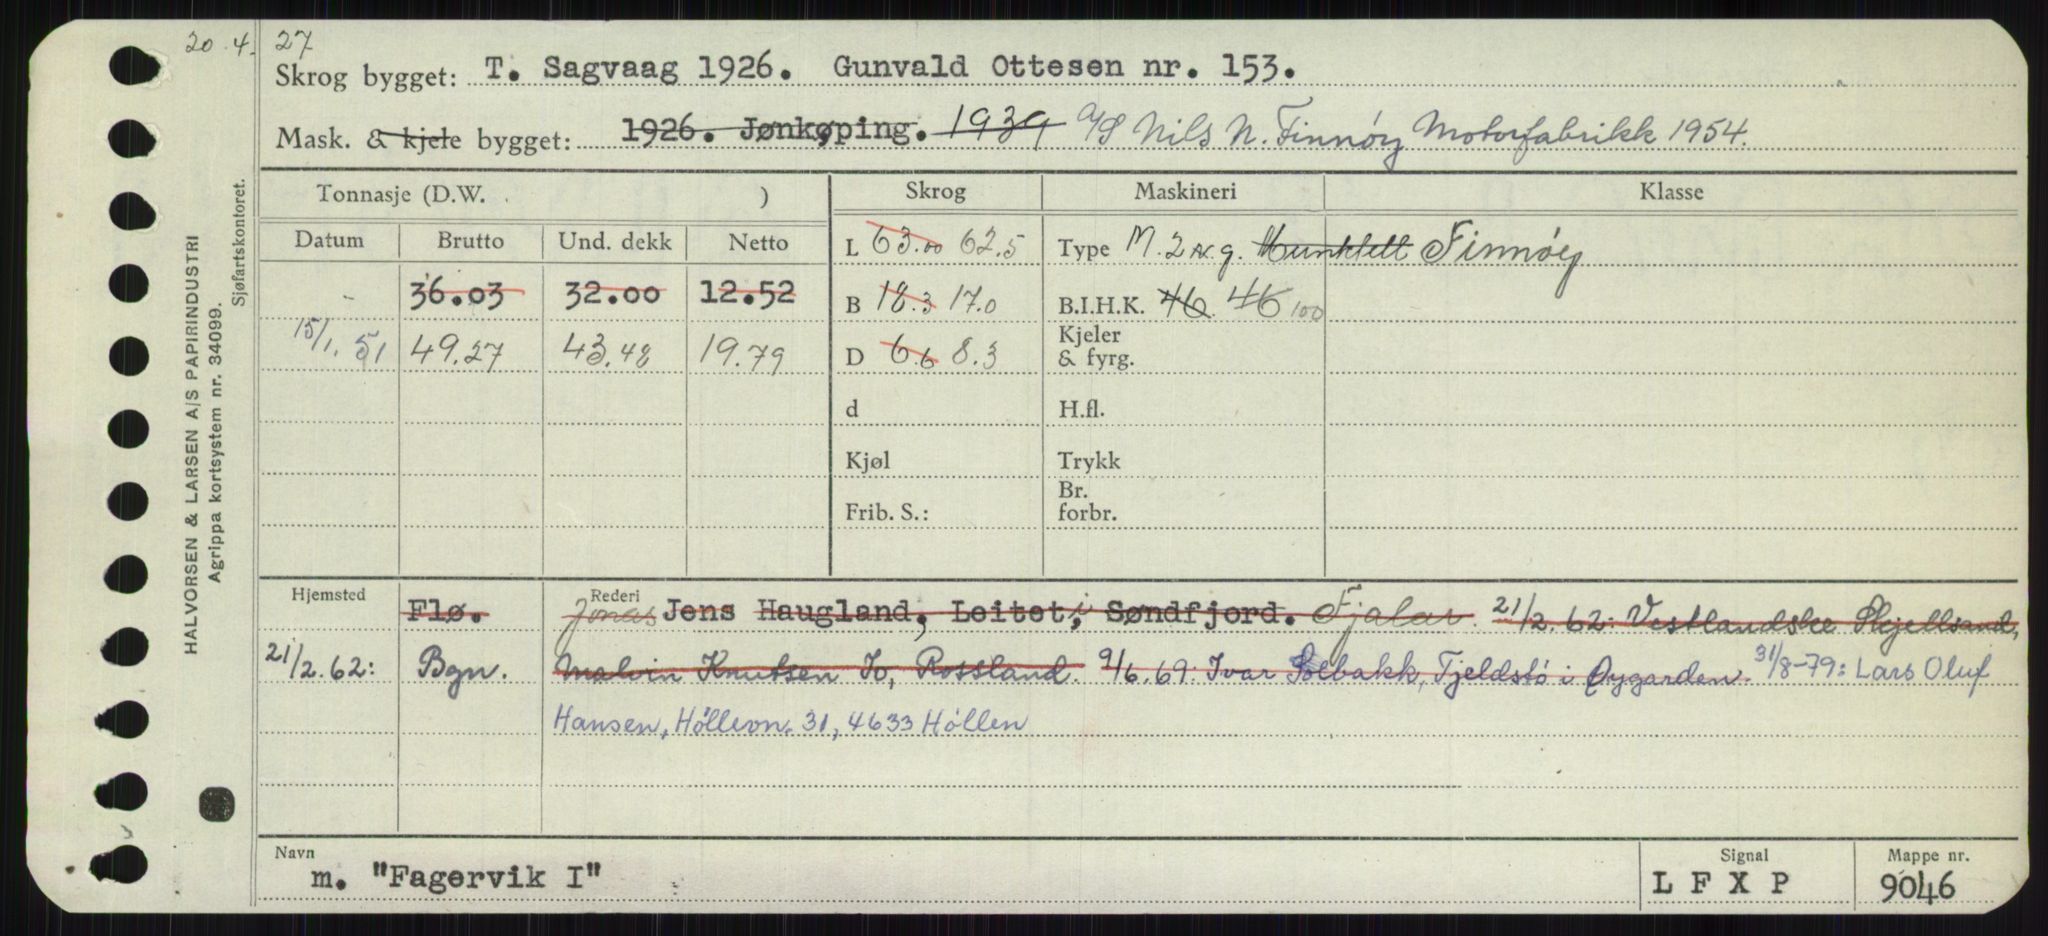 20.4.27
Skrog bygget: T. Sagvaag 1926. Gunvald Ottesen nr. 153.
Mask. & kjele bygget: 1926. Jønkøping. 1939 A/S Nils N. Finnöy Motorfabrikk 1954.
Tonnasje (D.W. ) Skrog Maskineri Klasse
Datum Brutto Und. dekk Netto L 63.00 62.5 Type M. 2 Finnöy
36.03 32.00 12.52 B 18.3 17.0 B.I.H.K. 46 46 100
15/1.51 49.27 43.48 19.79 D 6.6 8.3 Kjeler
& fyrg.
d H.fl.
Kjøl Trykk
Br.
Frib. S.: forbr.
Hjemsted Rederi
Flø. Jonas Jens Haugland, Leitet, i Søndfjord. Fjalar. 21/2.62: Vestlandske Skjellsand,
21/2.62: Bgn. Malvin Knutsen Jo, Rossland. 9/6.69: Ivar Solbakk, Tjeldstö i Øygarden. 31/8-79: Lars Oluf
Hansen, Höllevn. 31, 4633 Höllen
Navn Signal Mappe nr.
m. "Fagervik I" L F X P 9046
HALVORSEN & LARSEN A/S PAPIRINDUSTRI
Agrippa kortsystem nr. 34099.
Sjøfartskontoret.